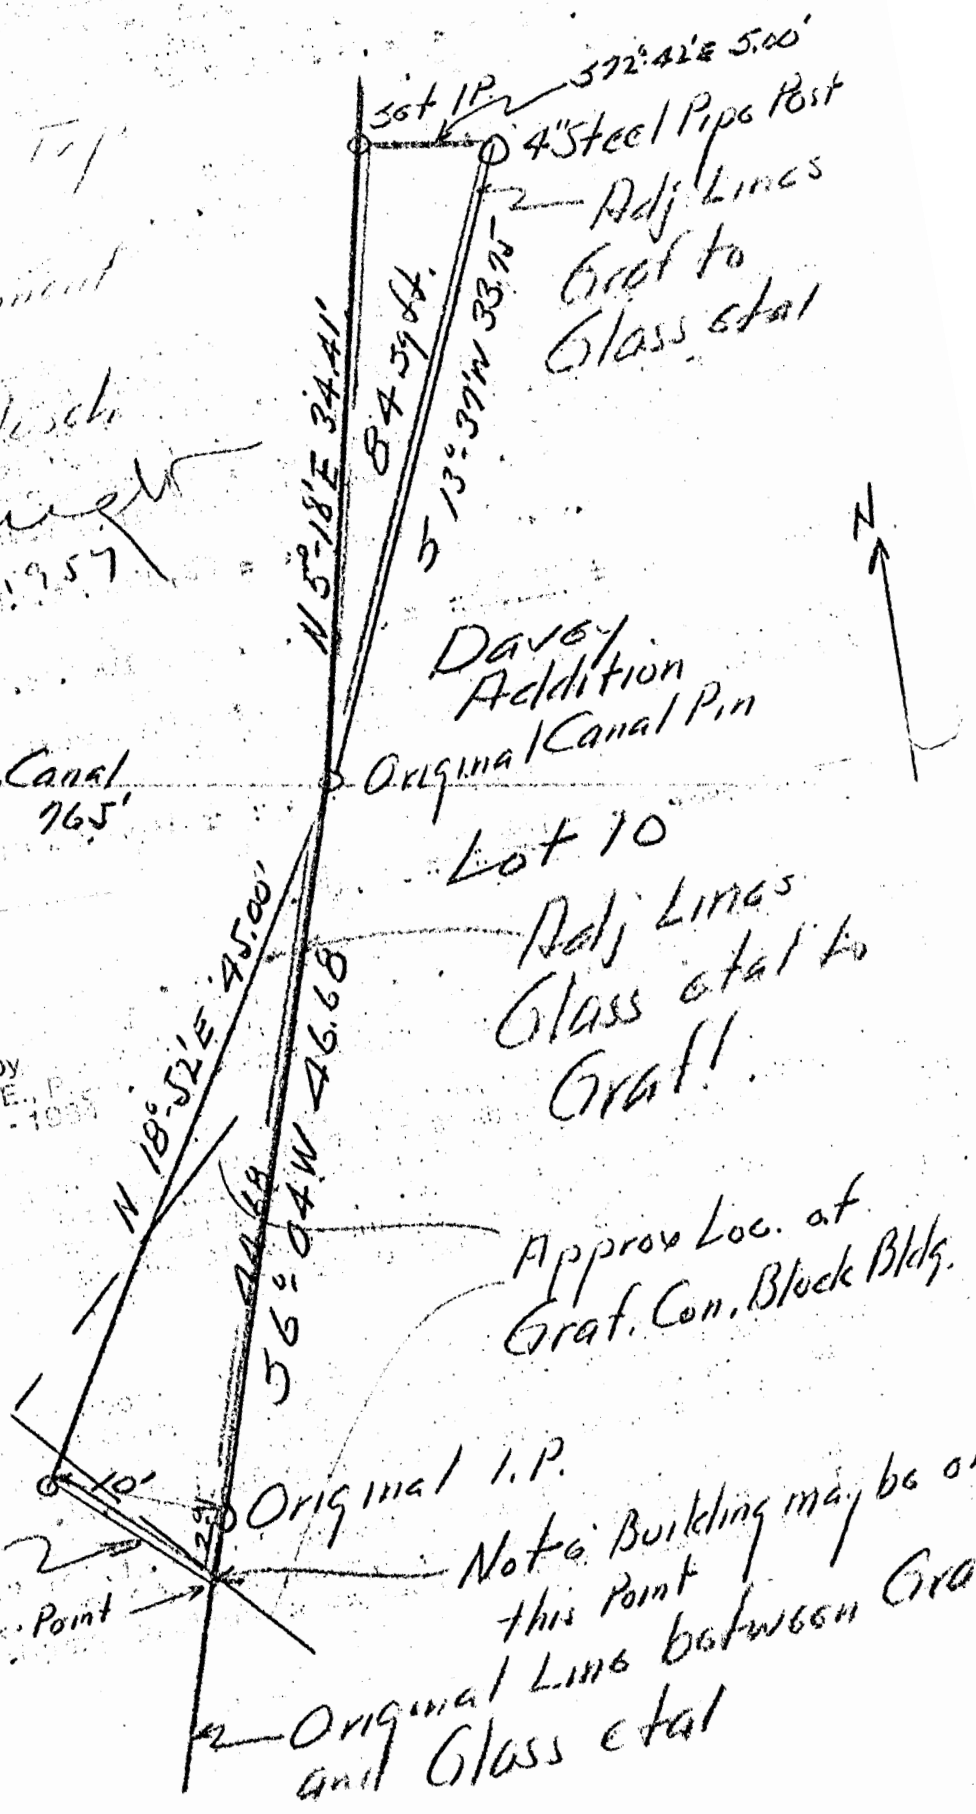 Set I.P.
S72°-42'E 5.00'
4" Steel Pipe Post
Adj Lines
Graf to
Glass etal
N 5°-18'E 34.41'
84 Sq ft.
S 13°-37'W 33.75
1957
N
Davey
Addition
Original Canal Pin
Canal
765'
Lot 10
Adj Lines
Glass etal to
Graf!
N 18°-52'E 45.00'
S 6°-04 W 46.68
44.68
Approx Loc. of
Graf. Con. Block Bldg.
10'
Original I.P.
Note: Building may be
this Point
Point
Original Line between
and Glass etal